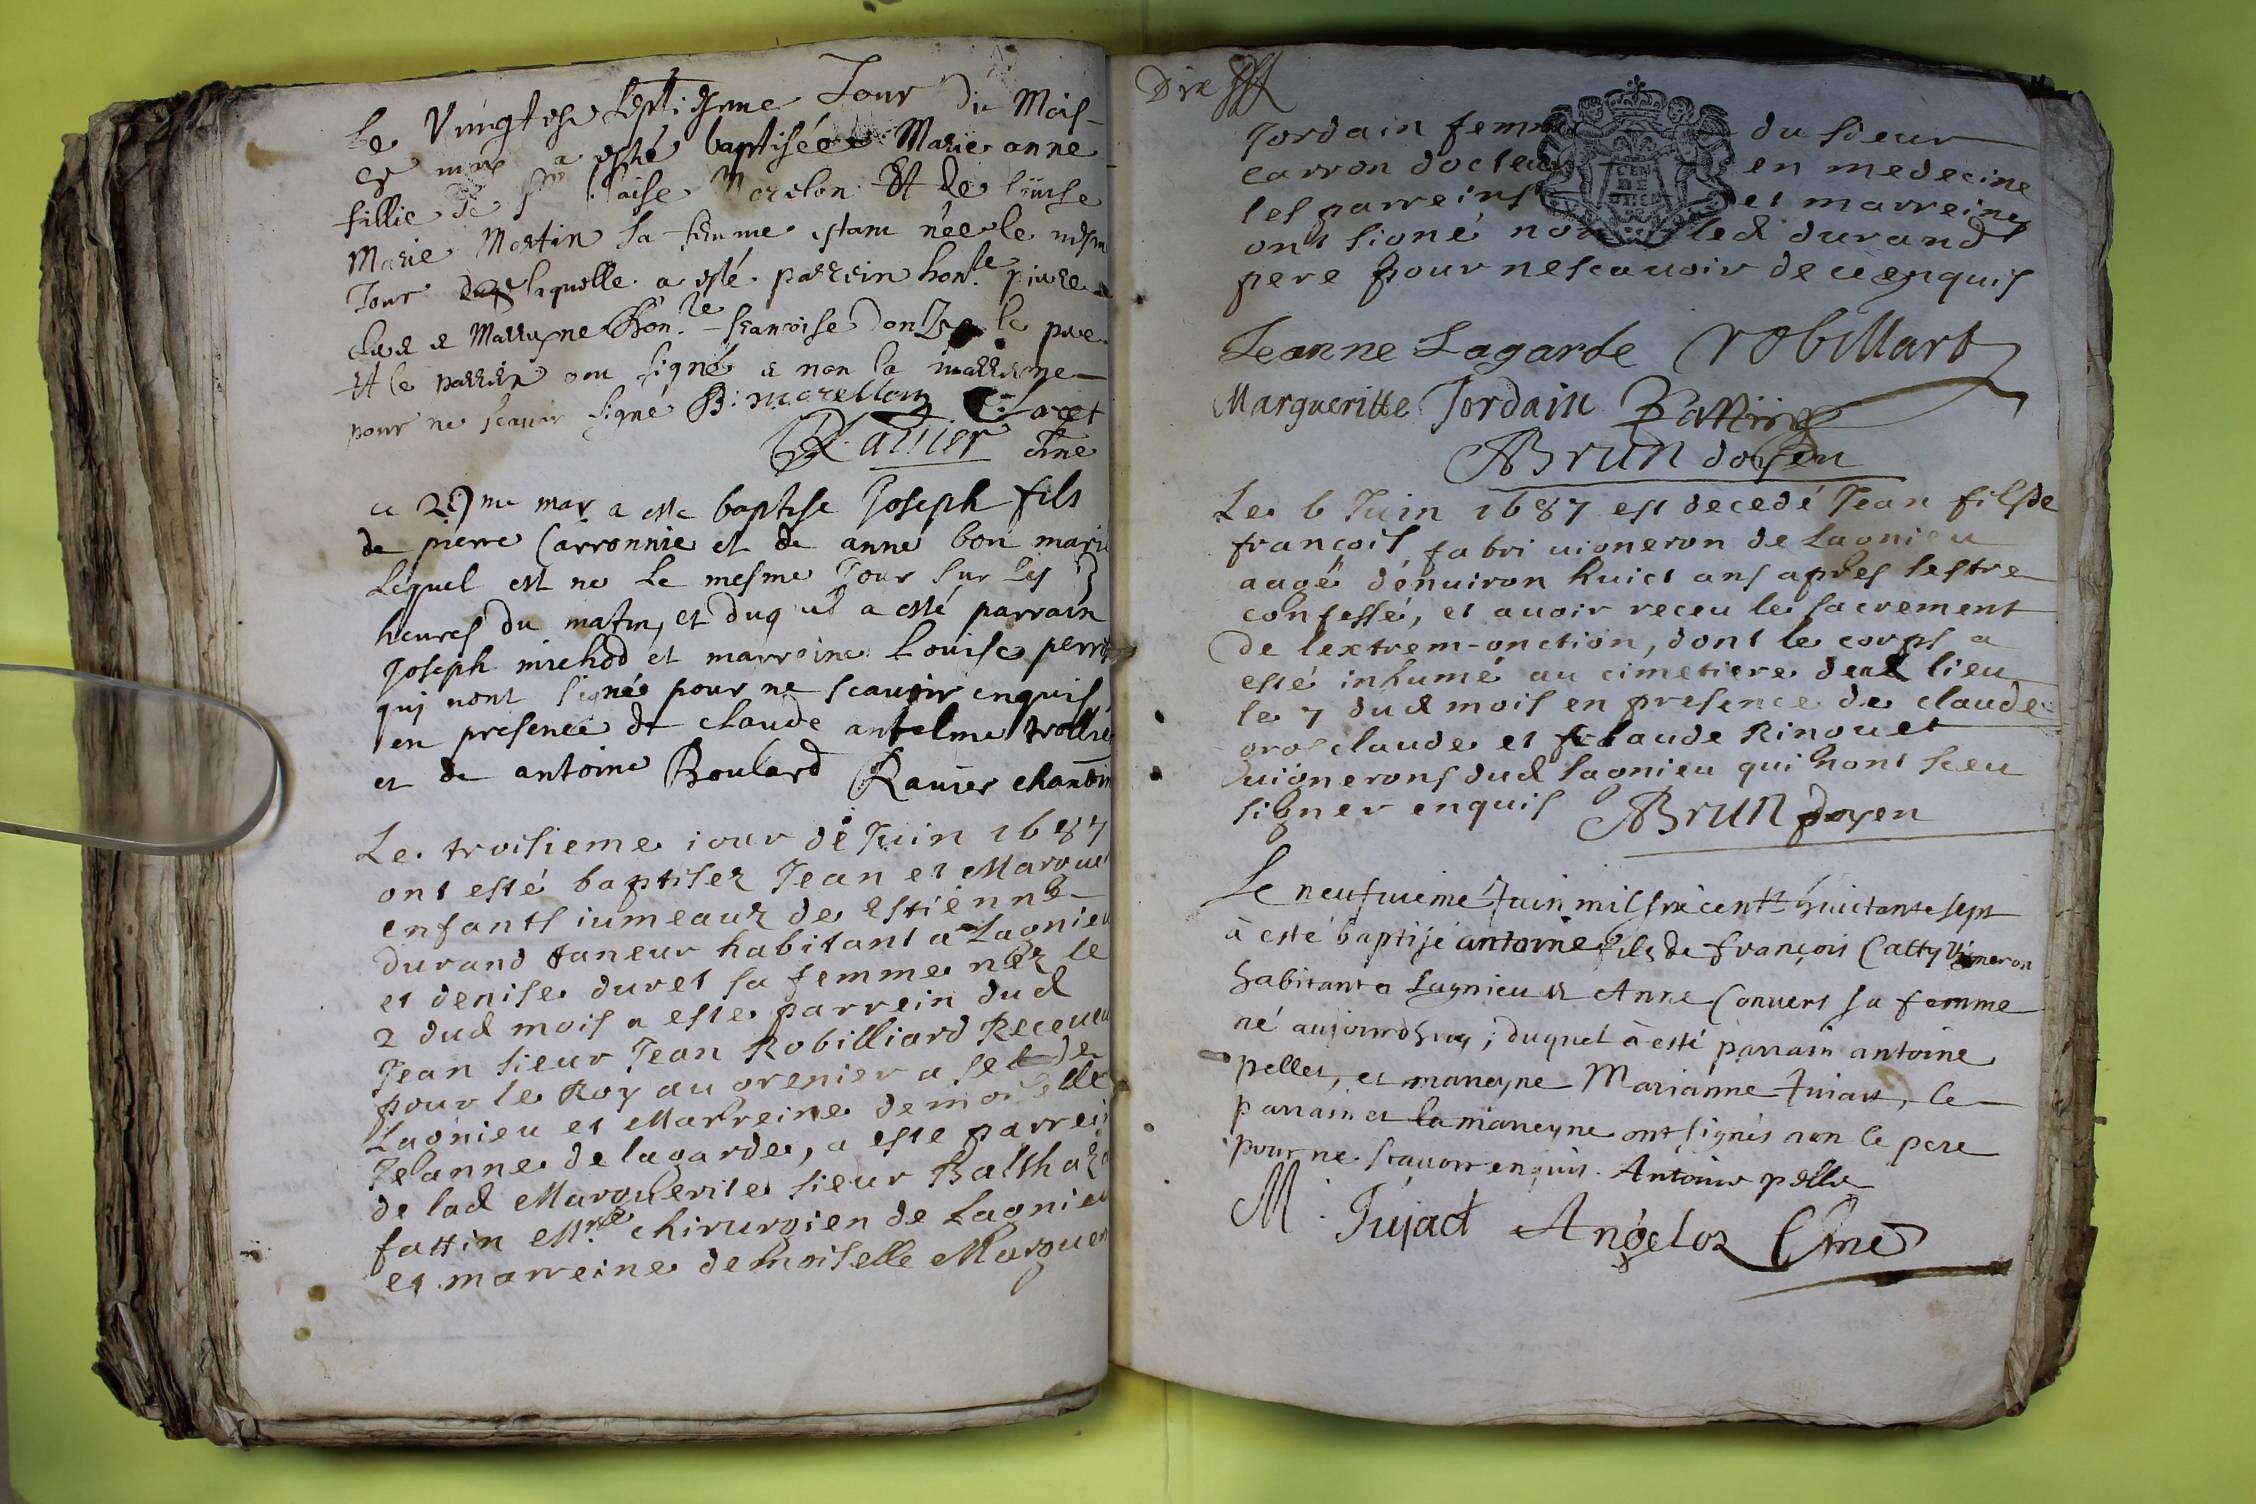 Le Vuingtese septiesme Jour Du Mois
De may a esté baptiséé Marie anne
fillie de sr blaise Morelon Et de louise
Marie Martin sa femme estant néé le mesme
Jour laquelle a esté parrein honle
Marreyne honle francoise le pere
Et le parrein ont signé & non la marreine
pour ne scavoir signé B: morellon Claret
Ravier chne
ce 29me may a este baptise Joseph fils
de pierre Carronnie et de anne bon mari
lequel est ne le mesme Jour sur les 3
heures du matin, et duquel a esté parrain
Joseph michod et marroine Louise
quj nont signé pour ne scavoir enquis
en presence de claude antelme trollie
et de antoine Boulard Ravier chanoin
Le troisieme iour de Juin 1687
ont esté baptisez Jean et Margue
enfants iumeaux de Estienne
durand taneur habitant a Lagnieu
et denise duret sa femme néz le
2 dud mois a esté parrein dud
Jean sieur Jean Robilliard Receueu
pour le Roy au grenier a sel de
Lagnieu et Marreine demoiselle
Jeanne de lagarde, a esté parrei
de lad Marguerite sieur Balthaza
fattin Mre chirurgien de Lagnieu
et marreine demoiselle Marguer
Dix
Jordain femme du sieur
carron docteur en medecine
les parreins et marreines
ont signé non led durand
pere pour ne scauoir de ce enquis
Jeanne Lagarde robillart
Margueritte Jordain Fattin
Brun doyen
Le 6 Juin 1687 est decedé Jean fils de
françois fabri uigneron de Lagnieu
aagé denuiron huict ans apres sestre
confessé, et auoir receu le sacrement
de lextrem-onction, dont le corps a
esté inhumé au cimetiere dud lieu
le 7 dud mois en presence de claude
gros claude et claude Rinouet
uignerons dud Lagnieu qui nont sceu
signer enquis Brun doyen
Le neufuieme Juin mil six centt huictante sept
à esté baptisé antoine fils de françois Catty Vigneron
habitant a Lagnieu & Anne Conuert sa femme
né aujourdhuy; duquel à esté parrain antoine
pellet, et marreyne Marianne Jujatt, le
parrain et la marreyne ont signés non le pere
pour ne scauoir enquis. Antoine pellet
M. Jujact Angeloz Chne